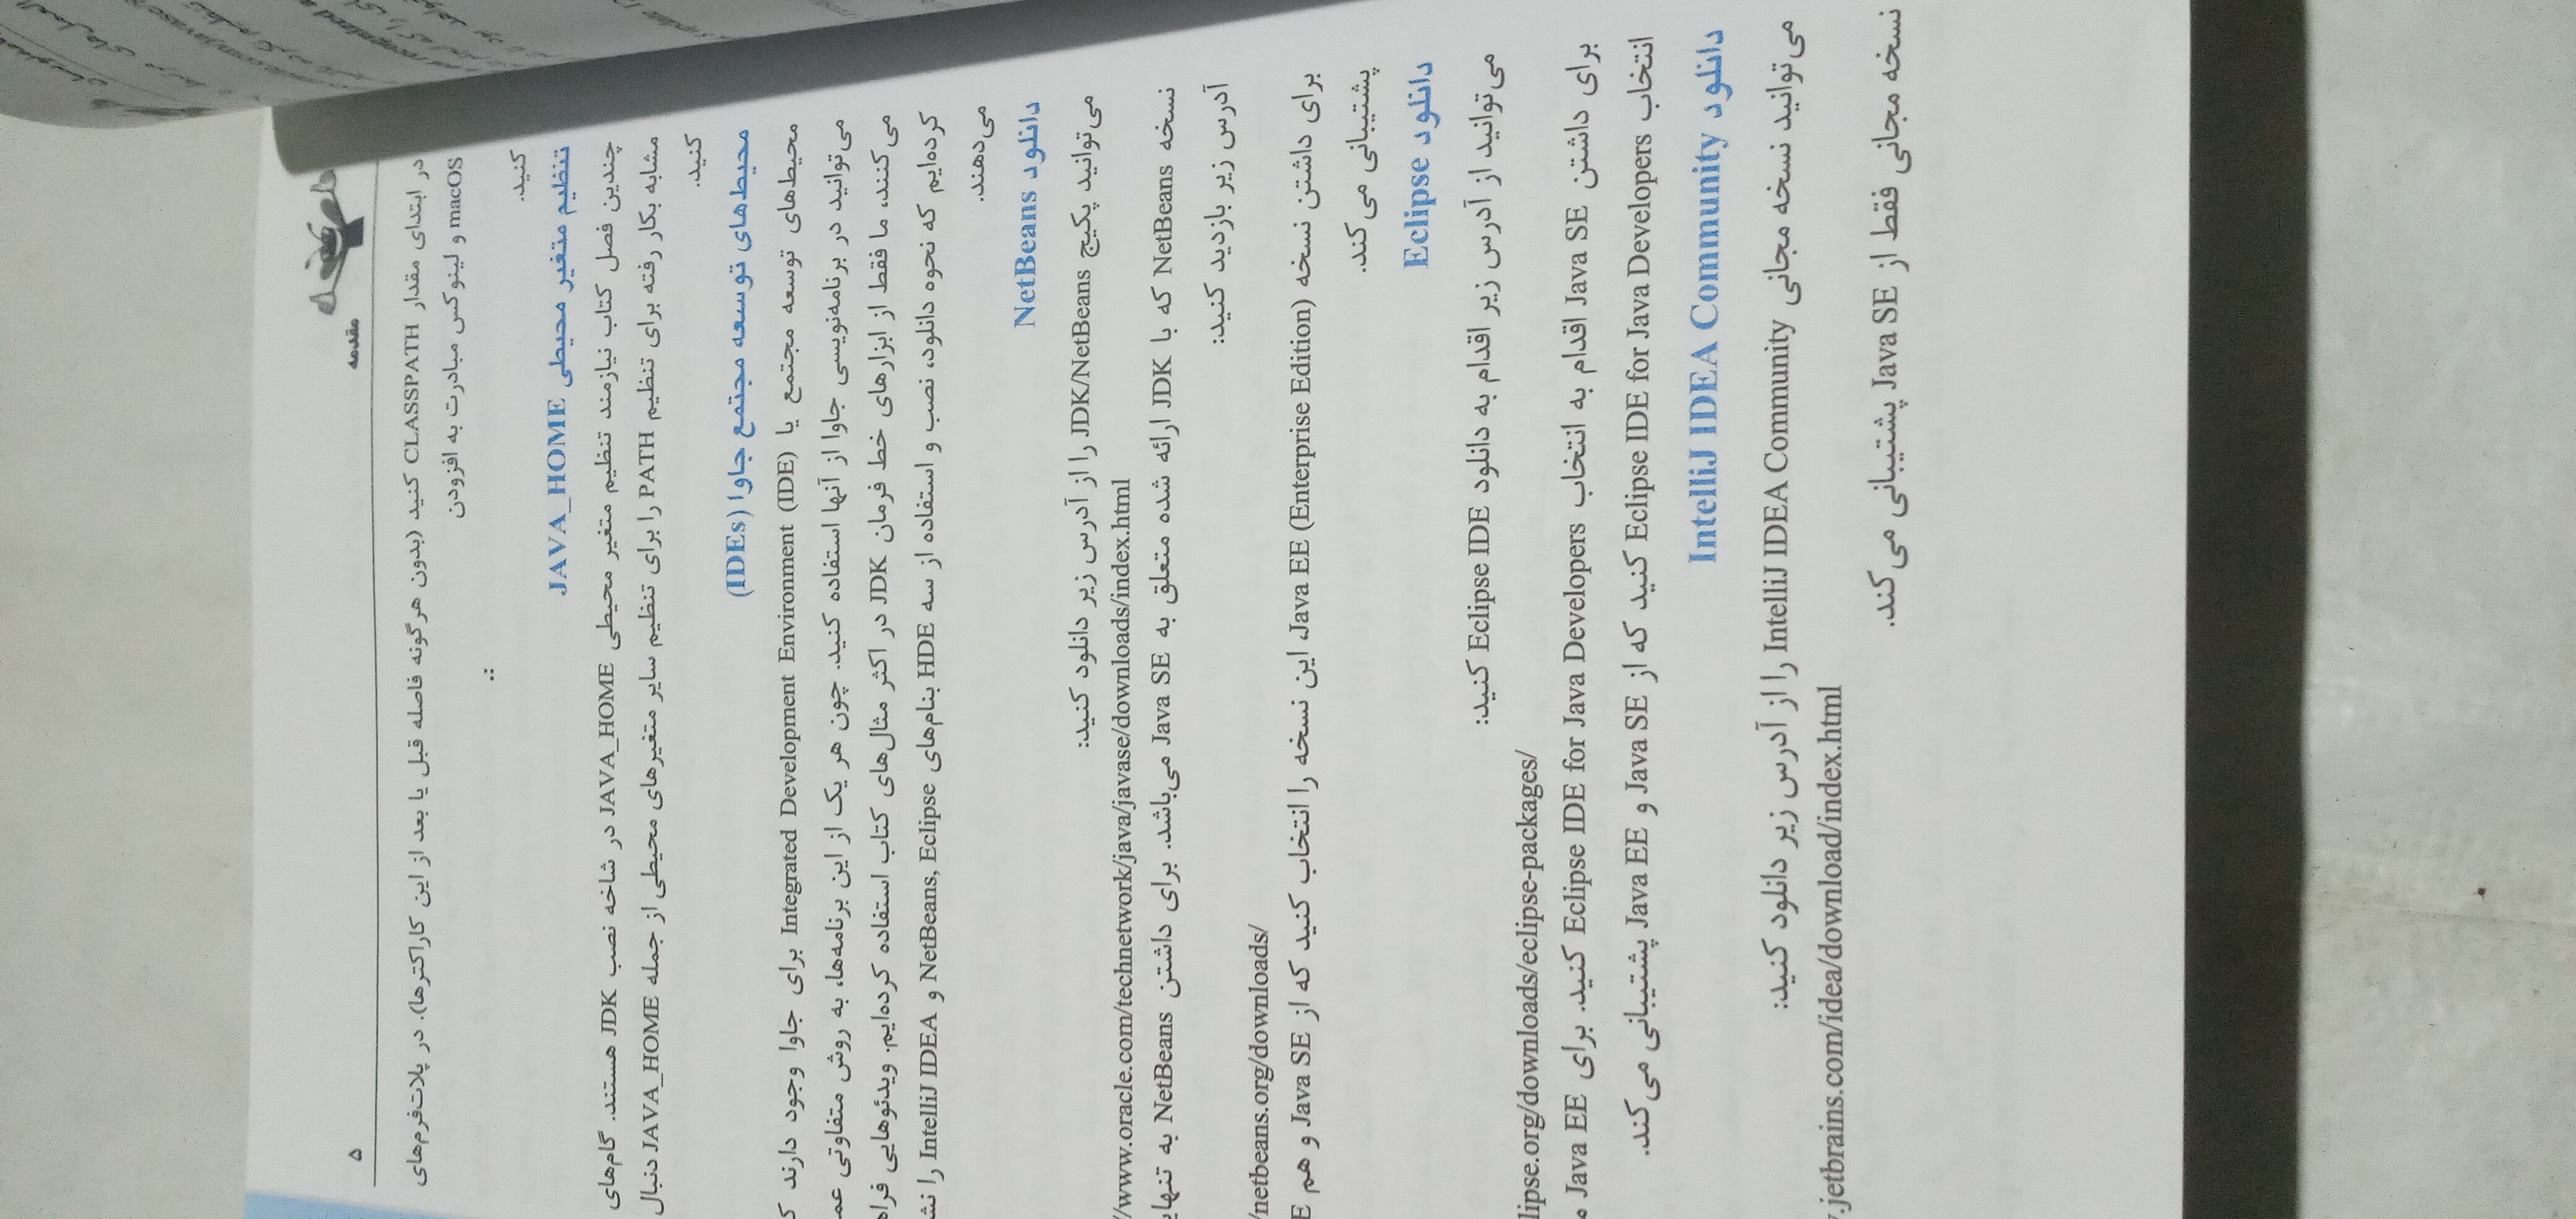 مقدمه ۵
در ابتدای مقدار CLASSPATH کنید (بدون هرگونه فاصله قبل یا بعد از این کاراکترها). در پلات‌فرم‌های
macOS و لینوکس مبادرت به افزودن
:.
کنید.
تنظیم متغیر محیطی JAVA_HOME
چندین فصل کتاب نیازمند تنظیم متغیر محیطی JAVA_HOME در شاخه نصب JDK هستند. گام‌های
مشابه بکار رفته برای تنظیم PATH را برای تنظیم سایر متغیرهای محیطی از جمله JAVA_HOME دنبال
کنید.
محیط‌های توسعه مجتمع جاوا (IDEs)
محیط‌های توسعه مجتمع یا Integrated Development Environment (IDE) برای جاوا وجود دارند
می‌توانید در برنامه‌نویسی جاوا از آنها استفاده کنید. چون هر یک از این برنامه‌ها، به روش متفاوتی
می‌کنند، ما فقط از ابزارهای خط فرمان JDK در اکثر مثال‌های کتاب استفاده کرده‌ایم. ویدئوهایی
کرده‌ایم که نحوه دانلود، نصب و استفاده از سه HDE بنام‌های NetBeans, Eclipse و IntelliJ IDEA را
می‌دهند.
دانلود NetBeans
می‌توانید پکیج JDK/NetBeans را از آدرس زیر دانلود کنید:
//www.oracle.com/technetwork/java/javase/downloads/index.html
نسخه NetBeans که با JDK ارائه شده متعلق به Java SE می‌باشد. برای داشتن NetBeans به
آدرس زیر بازدید کنید:
/netbeans.org/downloads/
برای داشتن نسخه Java EE (Enterprise Edition)، این نسخه را انتخاب کنید که از Java SE و هم
پشتیبانی می‌کند.
دانلود Eclipse
می‌توانید از آدرس زیر اقدام به دانلود Eclipse IDE کنید:
lipse.org/downloads/eclipse-packages/
برای داشتن Java SE اقدام به انتخاب Eclipse IDE for Java Developers کنید. برای Java EE
انتخاب Eclipse IDE for Java Developers کنید که از Java SE و Java EE پشتیبانی می‌کند.
دانلود IntelliJ IDEA Community
می‌توانید نسخه مجانی IntelliJ IDEA Community را از آدرس زیر دانلود کنید:
.jetbrains.com/idea/download/index.html
نسخه مجانی فقط از Java SE پشتیبانی می‌کند.